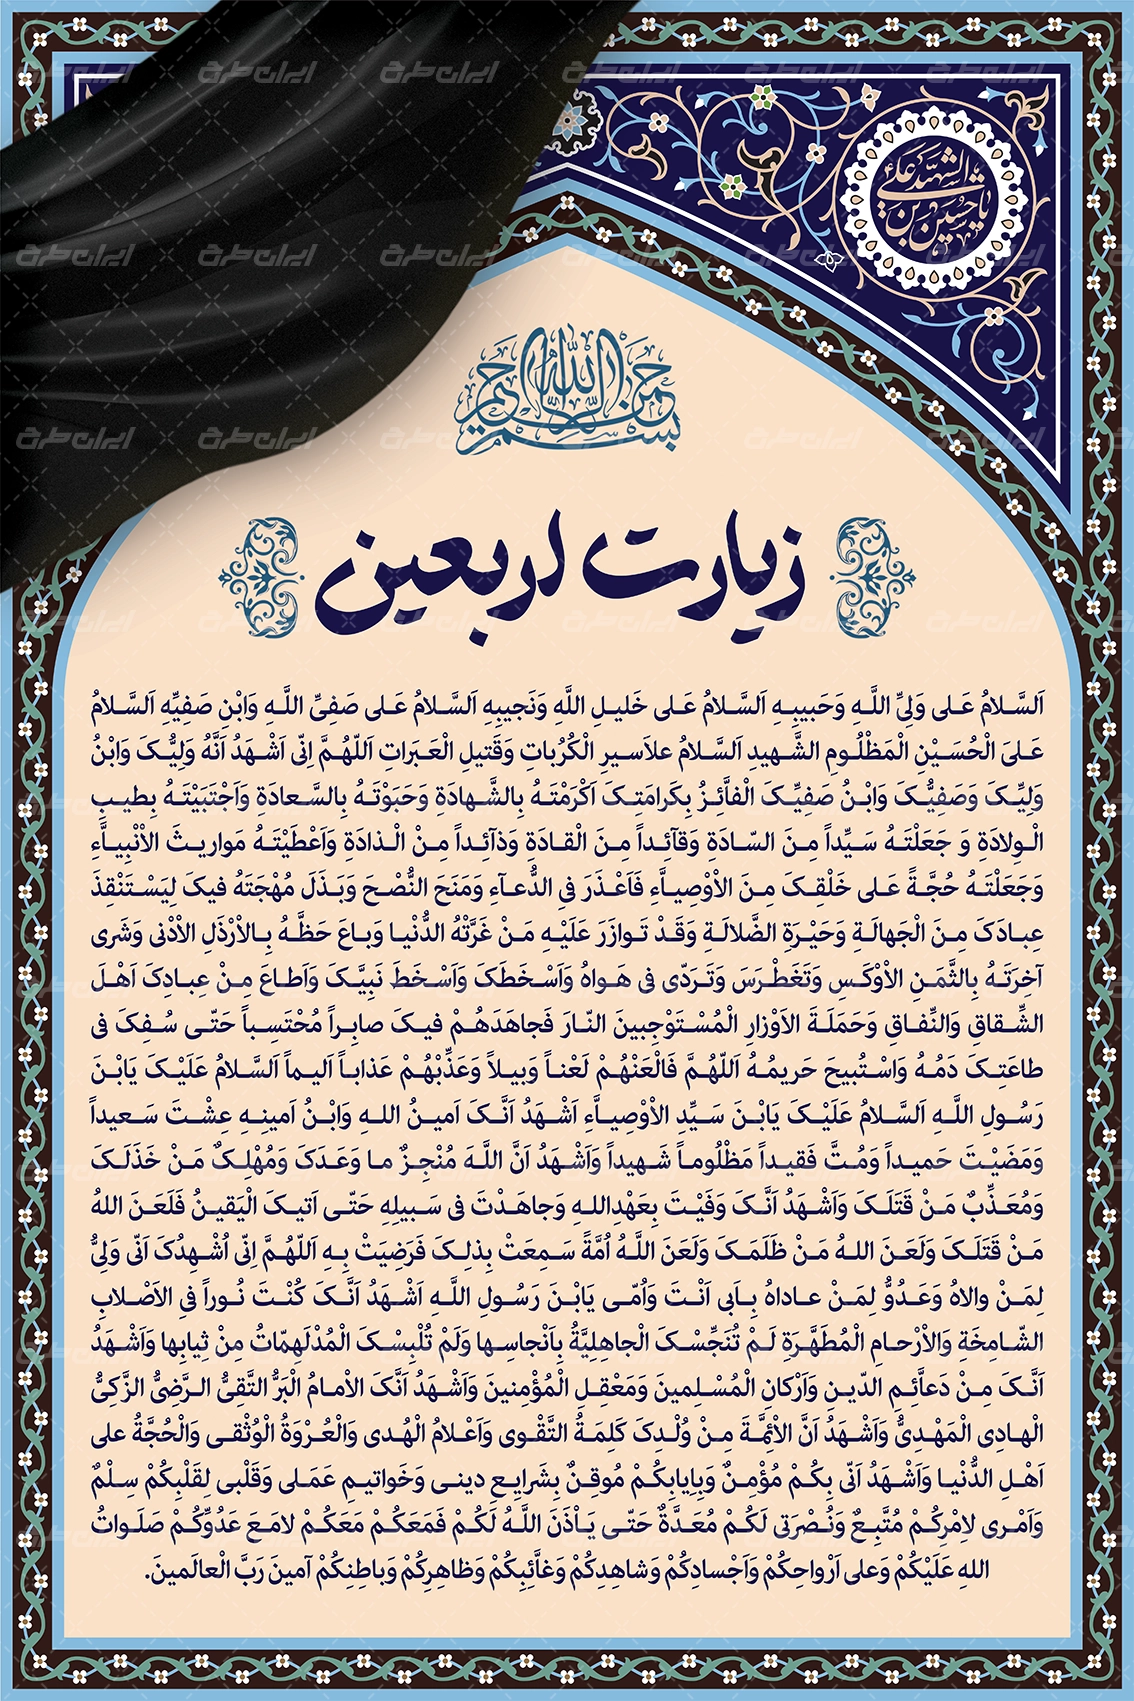 یا حسین بن علی الشهید
بسم الله الرحمن الرحیم
زیارت اربعین
اَلسَّلامُ عَلی وَلِیِّ اللَّهِ وَحَبیبِهِ اَلسَّلامُ عَلی خَلیلِ اللَّهِ وَنَجیبِهِ اَلسَّلامُ عَلی صَفِیِّ اللَّهِ وَابْنِ صَفِیِّهِ اَلسَّلامُ
عَلیَ الْحُسَیْنِ الْمَظْلُومِ الشَّهیدِ اَلسَّلامُ علاَسیرِ الْکُرُباتِ وَقَتیلِ الْعَبَراتِ اَللّهُمَّ اِنّی اَشْهَدُ اَنَّهُ وَلِیُّکَ وَابْنُ
وَلِیِّکَ وَصَفِیُّکَ وَابْنُ صَفِیِّکَ الْفاَّئِزُ بِکَرامَتِکَ اَکْرَمْتَهُ بِالشَّهادَةِ وَحَبَوْتَهُ بِالسَّعادَةِ وَاَجْتَبَیْتَهُ بِطیبِ
الْوِلادَةِ وَ جَعَلْتَهُ سَیِّداً مِنَ السّادَةِ وَقآئِداً مِنَ الْقادَةِ وَذآئِداً مِنْ الْذادَةِ وَاَعْطَیْتَهُ مَواریثَ الأنْبِیاَّءِ
وَجَعَلْتَهُ حُجَّةً عَلی خَلْقِکَ مِنَ الاْوْصِیاَّءِ فَاَعْذَرَ فِی الدُّعآءِ وَمَنَحَ النُّصْحَ وَبَذَلَ مُهْجَتَهُ فیکَ لِیَسْتَنْقِذَ
عِبادَکَ مِنَ الْجَهالَةِ وَحَیْرَةِ الضَّلالَةِ وَقَدْ تَوازَرَ عَلَیْهِ مَنْ غَرَّتْهُ الدُّنْیا وَباعَ حَظَّهُ بِالأرْذَلِ الاْدْنی وَشَری
آخِرَتَهُ بِالثَّمَنِ الاْوْکَسِ وَتَغَطْرَسَ وَتَرَدّی فی هَواهُ وَاَسْخَطَکَ وَاَسْخَطَ نَبِیَّکَ وَاَطاعَ مِنْ عِبادِکَ اَهْلَ
الشِّقاقِ وَالنِّفاقِ وَحَمَلَةَ الاَوْزارِ الْمُسْتَوْجِبینَ النّارَ فَجاهَدَهُمْ فیکَ صابِراً مُحْتَسِباً حَتّی سُفِکَ فی
طاعَتِکَ دَمُهُ وَاسْتُبیحَ حَریمُهُ اَللّهُمَّ فَالْعَنْهُمْ لَعْناً وَبیلاً وَعَذِّبْهُمْ عَذاباً اَلیماً اَلسَّلامُ عَلَیْکَ یَابْنَ
رَسُولِ اللَّهِ اَلسَّلامُ عَلَیْکَ یَابْنَ سَیِّدِ الاْوْصِیاَّءِ اَشْهَدُ اَنَّکَ اَمینُ اللهِ وَابْنُ اَمینِهِ عِشْتَ سَعیداً
وَمَضَیْتَ حَمیداً وَمُتَّ فَقیداً مَظْلُوماً شَهیداً وَاَشْهَدُ اَنَّ اللَّهَ مُنْجِزٌ ما وَعَدَکَ وَمُهْلِکٌ مَنْ خَذَلَکَ
وَمُعَذِّبٌ مَنْ قَتَلَکَ وَاَشْهَدُ اَنَّکَ وَفَیْتَ بِعَهْدِاللهِ وَجاهَدْتَ فی سَبیلِهِ حَتّی اَتیکَ الْیَقینُ فَلَعَنَ اللهُ
مَنْ قَتَلَکَ وَلَعَنَ اللهُ مَنْ ظَلَمَکَ وَلَعَنَ اللَّهُ اُمَّةً سَمِعَتْ بِذلِکَ فَرَضِیَتْ بِهِ اَللّهُمَّ اِنّی اُشْهِدُکَ اَنّی وَلِیٌّ
لِمَنْ والاهُ وَعَدُوٌّ لِمَنْ عاداهُ بِاَبی اَنْتَ وَاُمّی یَابْنَ رَسُولِ اللَّهِ اَشْهَدُ اَنَّکَ کُنْتَ نُوراً فِی الاَصْلابِ
الشّامِخَةِ وَالاْرْحامِ الْمُطَهَّرَةِ لَمْ تُنَجِّسْکَ الْجاهِلِیَّةُ بِاَنْجاسِها وَلَمْ تُلْبِسْکَ الْمُدْلَهِمّاتُ مِنْ ثِیابِها وَاَشْهَدُ
اَنَّکَ مِنْ دَعاَّئِمِ الدّینِ وَاَرْکانِ الْمُسْلِمینَ وَمَعْقِلِ الْمُؤْمِنینَ وَاَشْهَدُ اَنَّکَ الاْمامُ الْبَرُّ التَّقِیُّ الرَّضِیُّ الزَّکِیُّ
الْهادِی الْمَهْدِیُّ وَاَشْهَدُ اَنَّ الاْئِمَّةَ مِنْ وُلْدِکَ کَلِمَةُ التَّقْوی وَاَعْلامُ الْهُدی وَالْعُرْوَةُ الْوُثْقی وَالْحُجَّةُ علی
اَهْلِ الدُّنْیا وَاَشْهَدُ اَنّی بِکُمْ مُؤْمِنٌ وَبِاِیابِکُمْ مُوقِنٌ بِشَرایِعِ دینی وَخَواتیمِ عَمَلی وَقَلْبی لِقَلْبِکُمْ سِلْمٌ
وَاَمْری لاِمْرِکُمْ مُتَّبِعٌ وَنُصْرَتی لَکُمْ مُعَدَّةٌ حَتّی یَاْذَنَ اللَّهُ لَکُمْ فَمَعَکُمْ مَعَکُمْ لامَعَ عَدُوِّکُمْ صَلَواتُ
اللهِ عَلَیْکُمْ وَعلی اَرْواحِکُمْ وَاَجْسادِکُمْ وَشاهِدِکُمْ وَغاَّئِبِکُمْ وَظاهِرِکُمْ وَباطِنِکُمْ آمینَ رَبَّ الْعالَمینَ.